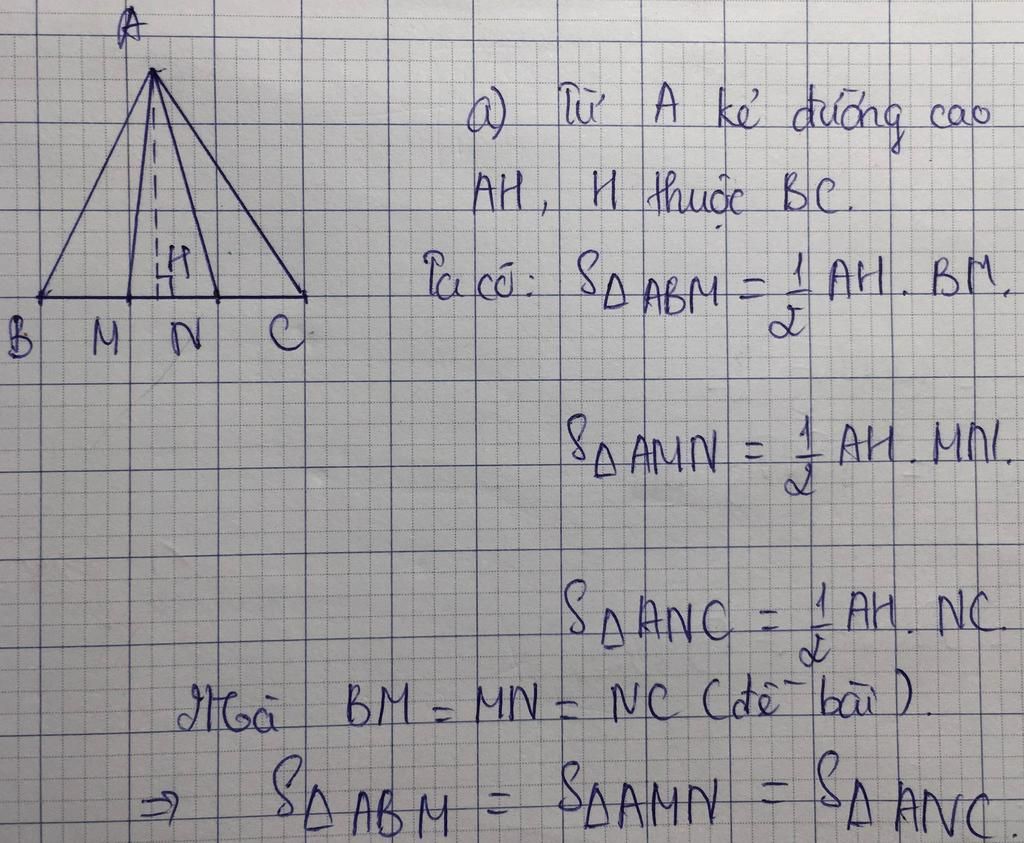 A
H
B M N C
a) Từ A kẻ đường cao
AH, H thuộc BC.
Ta có: SΔABM = 1/2 AH. BM.
SΔAMN = 1/2 AH. MN.
SΔANC = 1/2 AH. NC.
Mà BM = MN = NC (đề bài).
⇒ SΔABM = SΔAMN = SΔANC.